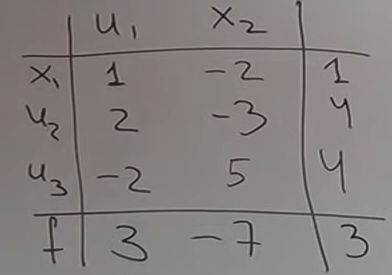 u₁ x₂
x₁ 1 -2 1
u₂ 2 -3 4
u₃ -2 5 4
f 3 -7 3